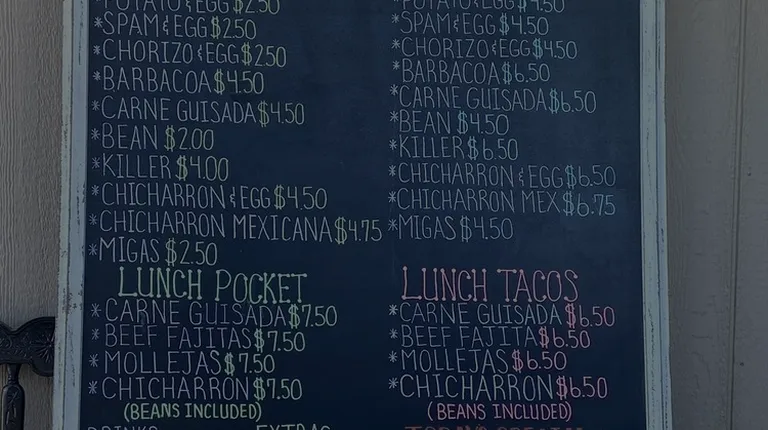 POTATO & EGG $2.50
*SPAM & EGG $2.50
*CHORIZO & EGG $2.50
*BARBACOA $4.50
*CARNE GUISADA $4.50
*BEAN $2.00
*KILLER $4.00
*CHICHARRON & EGG $4.50
*CHICHARRON MEXICANA $4.75
*MIGAS $2.50
LUNCH POCKET
*CARNE GUISADA $7.50
*BEEF FAJITAS $7.50
*MOLLEJAS $7.50
*CHICHARRON $7.50
(BEANS INCLUDED)
DRINKS
EXTRAS
POTATO & EGG $4.50
*SPAM & EGG $4.50
*CHORIZO & EGG $4.50
*BARBACOA $6.50
*CARNE GUISADA $6.50
*BEAN $4.50
*KILLER $6.50
*CHICHARRON & EGG $6.50
*CHICHARRON MEX $6.75
*MIGAS $4.50
LUNCH TACOS
*CARNE GUISADA $6.50
*BEEF FAJITA $6.50
*MOLLEJAS $6.50
*CHICHARRON $6.50
(BEANS INCLUDED)